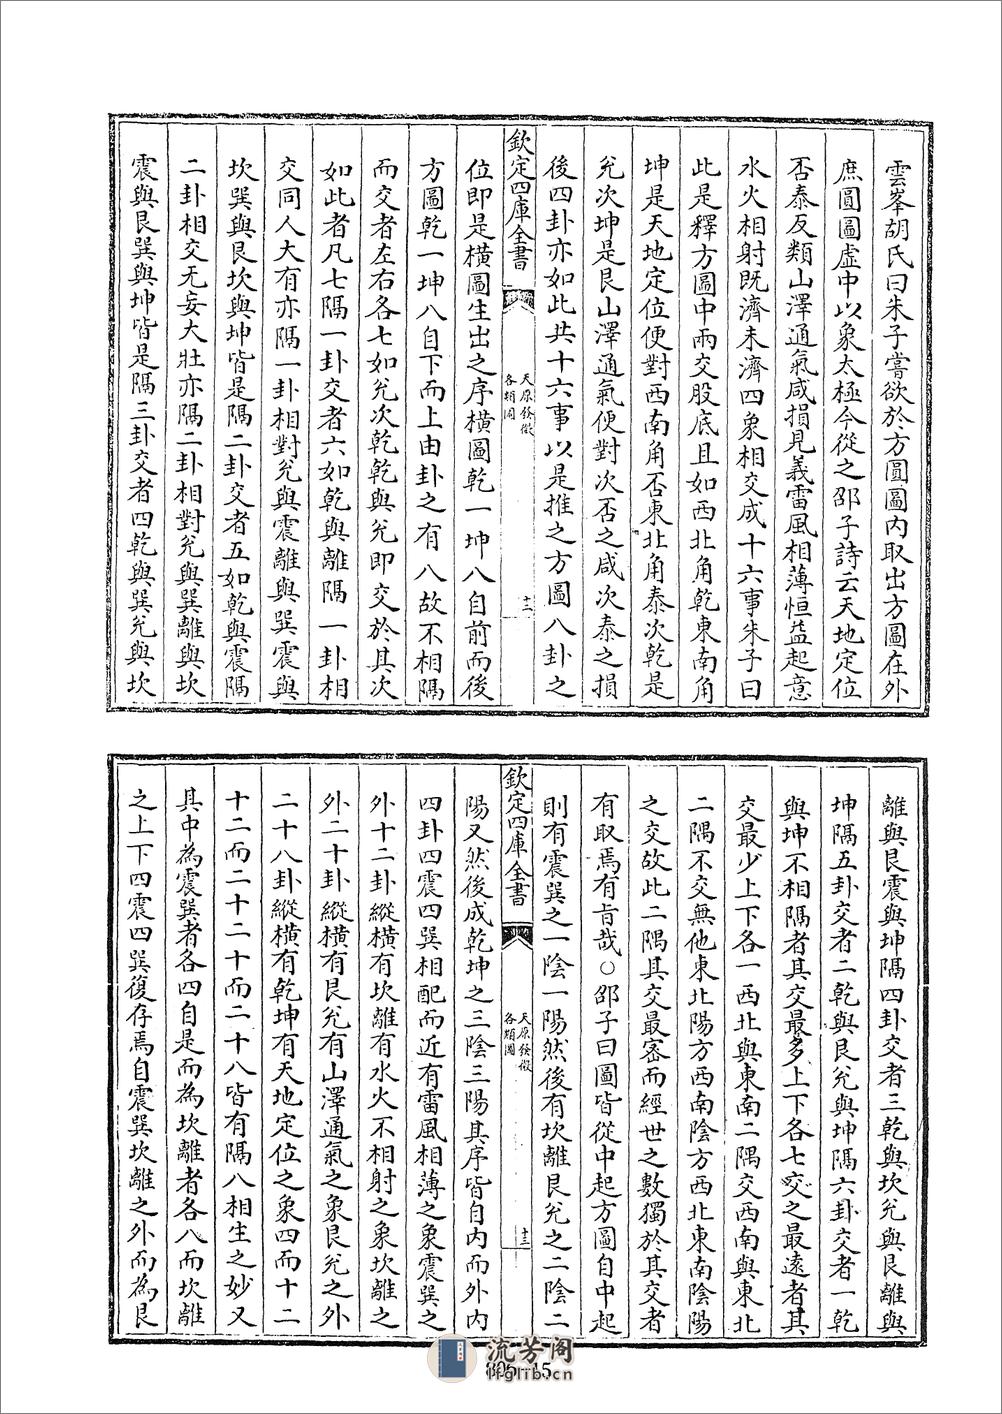 雲峯胡氏曰朱子嘗欲於方圓圖内取出方圖在外
庶圓圖虚中以象太極今從之邵子詩云天地定位
否泰反類山澤通氣咸損見義雷風相薄恒益起意
水火相射既濟未濟四象相交成十六事朱子曰
此是釋方圖中兩交股底且如西北角乾東南角
坤是天地定位便對西南角否東北角泰次乾是
兊次坤是艮山澤通氣便對次否之咸次泰之損
後四卦亦如此共十六事以是推之方圖八卦之
欽定四庫全書
天原發微
各類圖
十二
位即是横圖生出之序横圖乾一坤八自前而後
方圖乾一坤八自下而上由卦之有八故不相隔
而交者左右各七如兊次乾乾與兊即交於其次
如此者凡七隔一卦交者六如乾與離隔一卦相
交同人大有亦隔一卦相對兊與震離與巽震與
坎巽與艮坎與坤皆是隔二卦交者五如乾與震隔
二卦相交无妄大壯亦隔二卦相對兊與巽離與坎
震與艮巽與坤皆是隔三卦交者四乾與巽兊與坎
離與艮震與坤隔四卦交者三乾與坎兊與艮離與
坤隔五卦交者二乾與艮兊與坤隔六卦交者一乾
與坤不相隔者其交最多上下各七交之最遠者其
交最少上下各一西北與東南二隅交西南與東北
二隅不交無他東北陽方西南陰方西北東南陰陽
之交故此二隅其交最密而經世之數獨於其交者
有取焉有㫖哉○邵子曰圖皆從中起方圖自中起
則有震巽之一陰一陽然後有坎離艮兊之二陰二
欽定四庫全書
天原發微
各類圖
十三
陽又然後成乾坤之三陰三陽其序皆自内而外内
四卦四震四巽相配而近有雷風相薄之象震巽之
外十二卦縱横有坎離有水火不相射之象坎離之
外二十卦縱横有艮兊有山澤通氣之象艮兊之外
二十八卦縱横有乾坤有天地定位之象四而十二
十二而二十二十而二十八皆有隔八相生之妙又
其中為震巽者各四自是而為坎離者各八而坎離
之上下四震四巽復存焉自震巽坎離之外而為艮
流芳阁
lfglib.cn